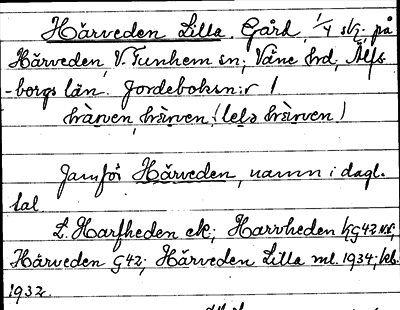 Härveden Lilla. Gård, 1/4 skg. på
Härveden, V. Tunhem sn; Väne hd, Älfs-
-borgs län. Jordeboksn:r 1
hä̀rven, hä̀rven, (lela hä̀rven)
Jamför Härveden, namn i dagl.
tal.
L. Harfheden ek; Harrheden
Härveden G42; Härveden Lilla ml. 1934; kb.
1932.